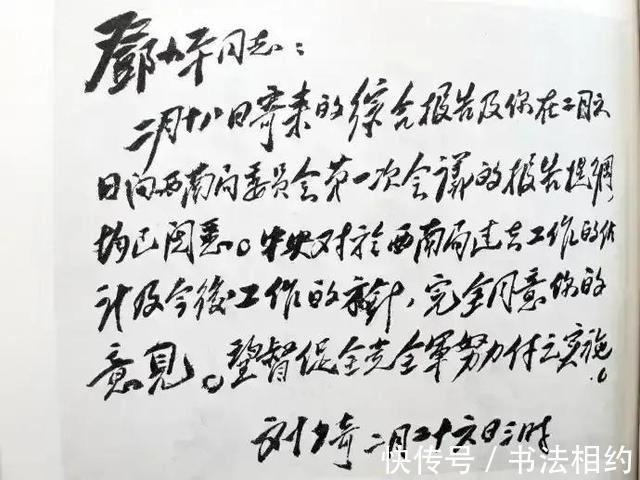 鄧小平同志：
二月十八日寄来的綜合报告及你在二月六
日向西南局委員会第一次会議的报告提綱
均已閱悉。中央对於西南局过去工作的估
计及今後工作的方針，完全同意你的
意見。望督促全党全軍努力付之实施。
刘少奇 二月二十六日三时
快传号 / 书法相约